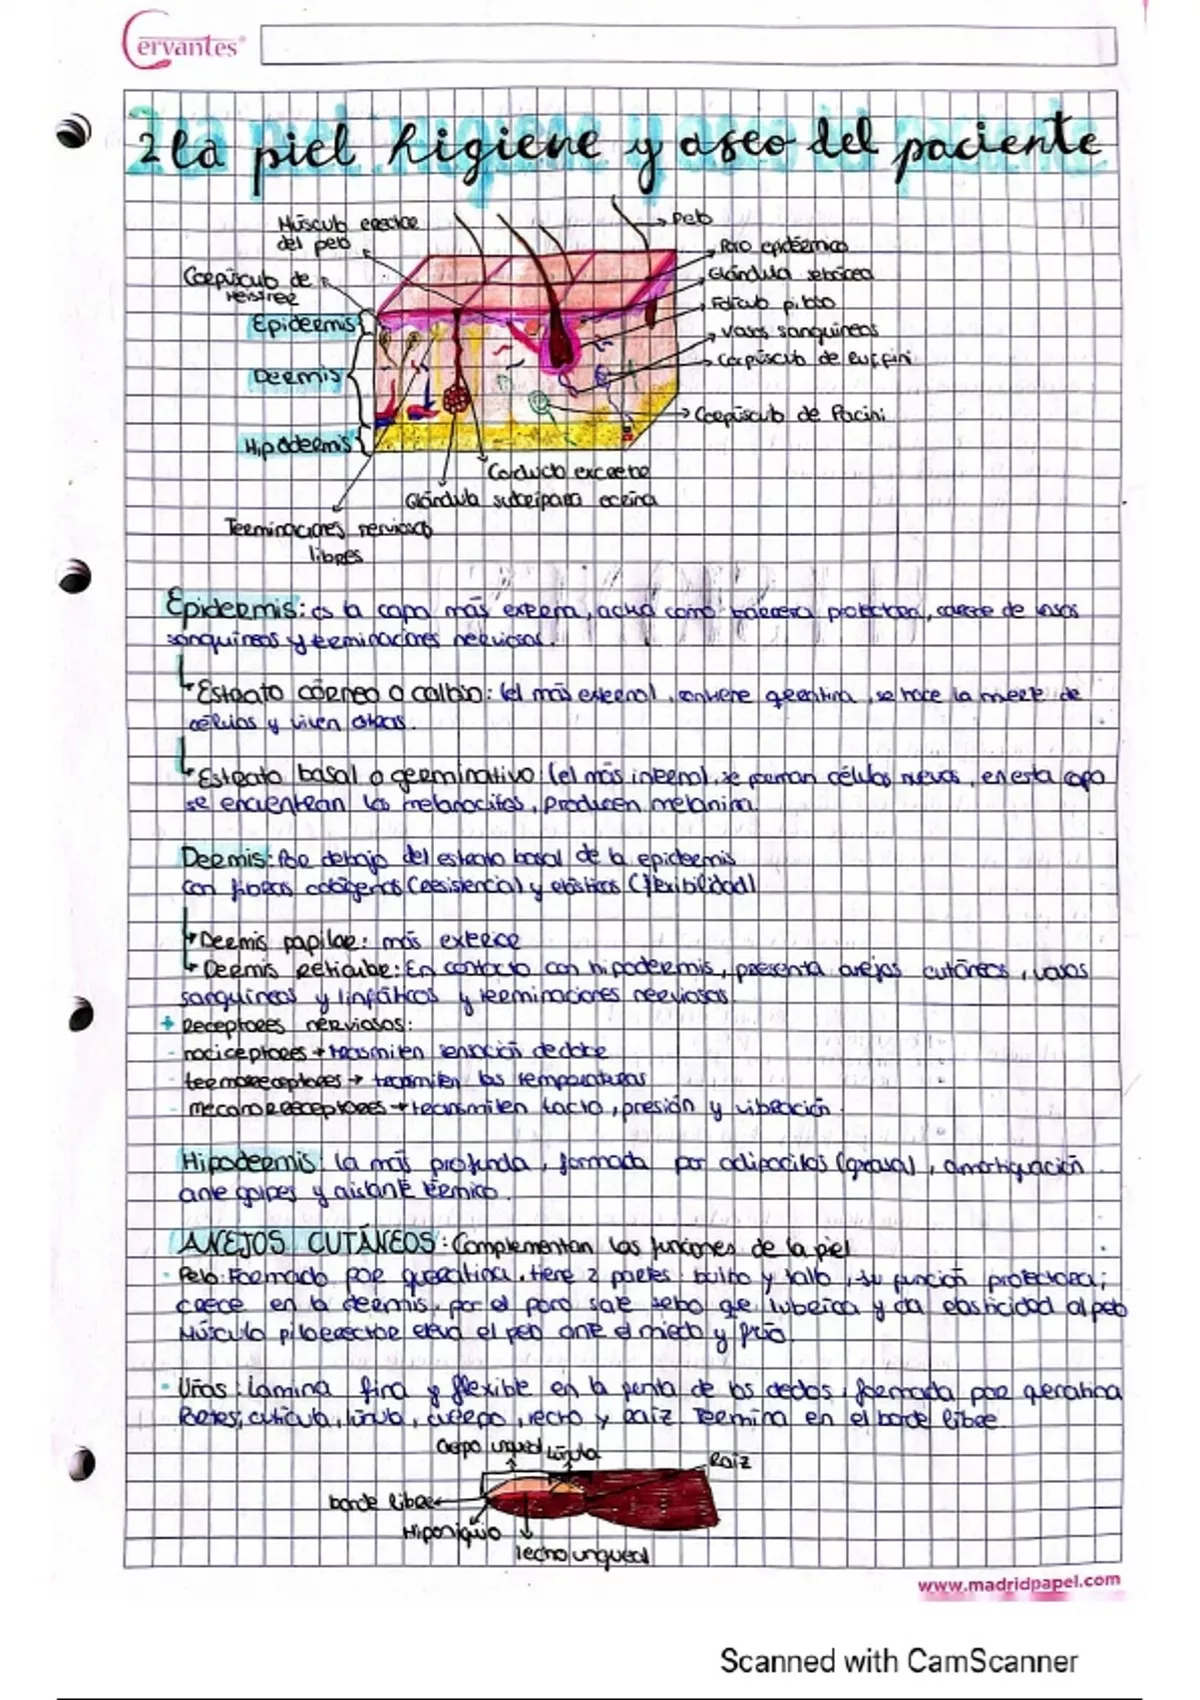 Cervantes®
2 la piel higiene y aseo del paciente
Músculo erector
del pelo
Pelo
Poro epidérmico
Corpúsculo de
Meissner
Glándula sebácea
Folículo piloso
Epidermis
Vasos sanguíneos
Corpúsculo de Ruffini
Dermis
Corpúsculo de Pacini
Hipodermis
Conducto excretor
Glándula sudorípara ecrina
Terminaciones nerviosas
libres
Epidermis: es la capa más externa, actúa como barrera protectora, carece de vasos
sanguíneos y terminaciones nerviosas.
Estrato córneo o calloso: (el más externo), contiene queratina, se hace la muerte de
células y viven otras.
Estrato basal o germinativo: (el más interno), se forman células nuevas, en esta capa
se encuentran los melanocitos, producen melanina.
Dermis: Por debajo del estrato basal de la epidermis
con fibras colágenas (resistencia) y elásticas (flexibilidad)
Dermis papilar: más exterior
Dermis reticular: En contacto con hipodermis, presenta anejos cutáneos, vasos
sanguíneos y linfáticos y terminaciones nerviosas.
+ Receptores nerviosos:
- nociceptores → trasmiten sensación de dolor
- termorreceptores → trasmiten las temperaturas
- mecanorreceptores → transmiten tacto, presión y vibración.
Hipodermis: la más profunda, formada por adipocitos (grasa), amortiguación
ante golpes y aislante térmico.
ANEJOS CUTÁNEOS: Complementan las funciones de la piel
- Pelo: Formado por queratina, tiene 2 partes: bulbo y tallo, su función protectora;
crece en la dermis, por el poro sale sebo que lubrica y da elasticidad al pelo
Músculo piloerector eleva el pelo ante el miedo y frío.
- Uñas: Lamina fina y flexible en la punta de los dedos, formada por queratina
Partes; cutícula, lúnula, cuerpo, lecho y raíz. Termina en el borde libre
Cuerpo ungueal
Lúnula
Raíz
borde libre
Hiponiquio
lecho ungueal
www.madridpapel.com
Scanned with CamScanner